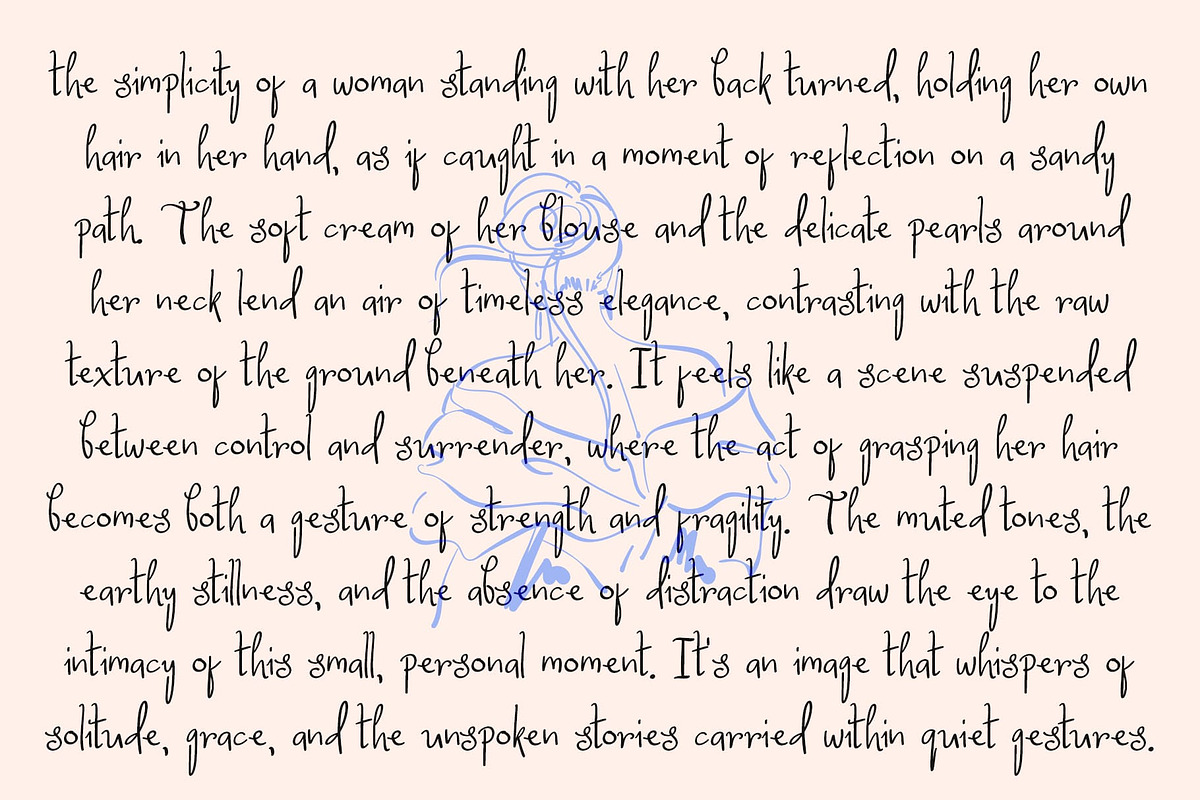 the simplicity of a woman standing with her back turned, holding her own
hair in her hand, as if caught in a moment of reflection on a sandy
path. The soft cream of her blouse and the delicate pearls around
her neck lend an air of timeless elegance, contrasting with the raw
texture of the ground beneath her. It feels like a scene suspended
between control and surrender, where the act of grasping her hair
becomes both a gesture of strength and fragility. The muted tones, the
earthy stillness, and the absence of distraction draw the eye to the
intimacy of this small, personal moment. It's an image that whispers of
solitude, grace, and the unspoken stories carried within quiet gestures.